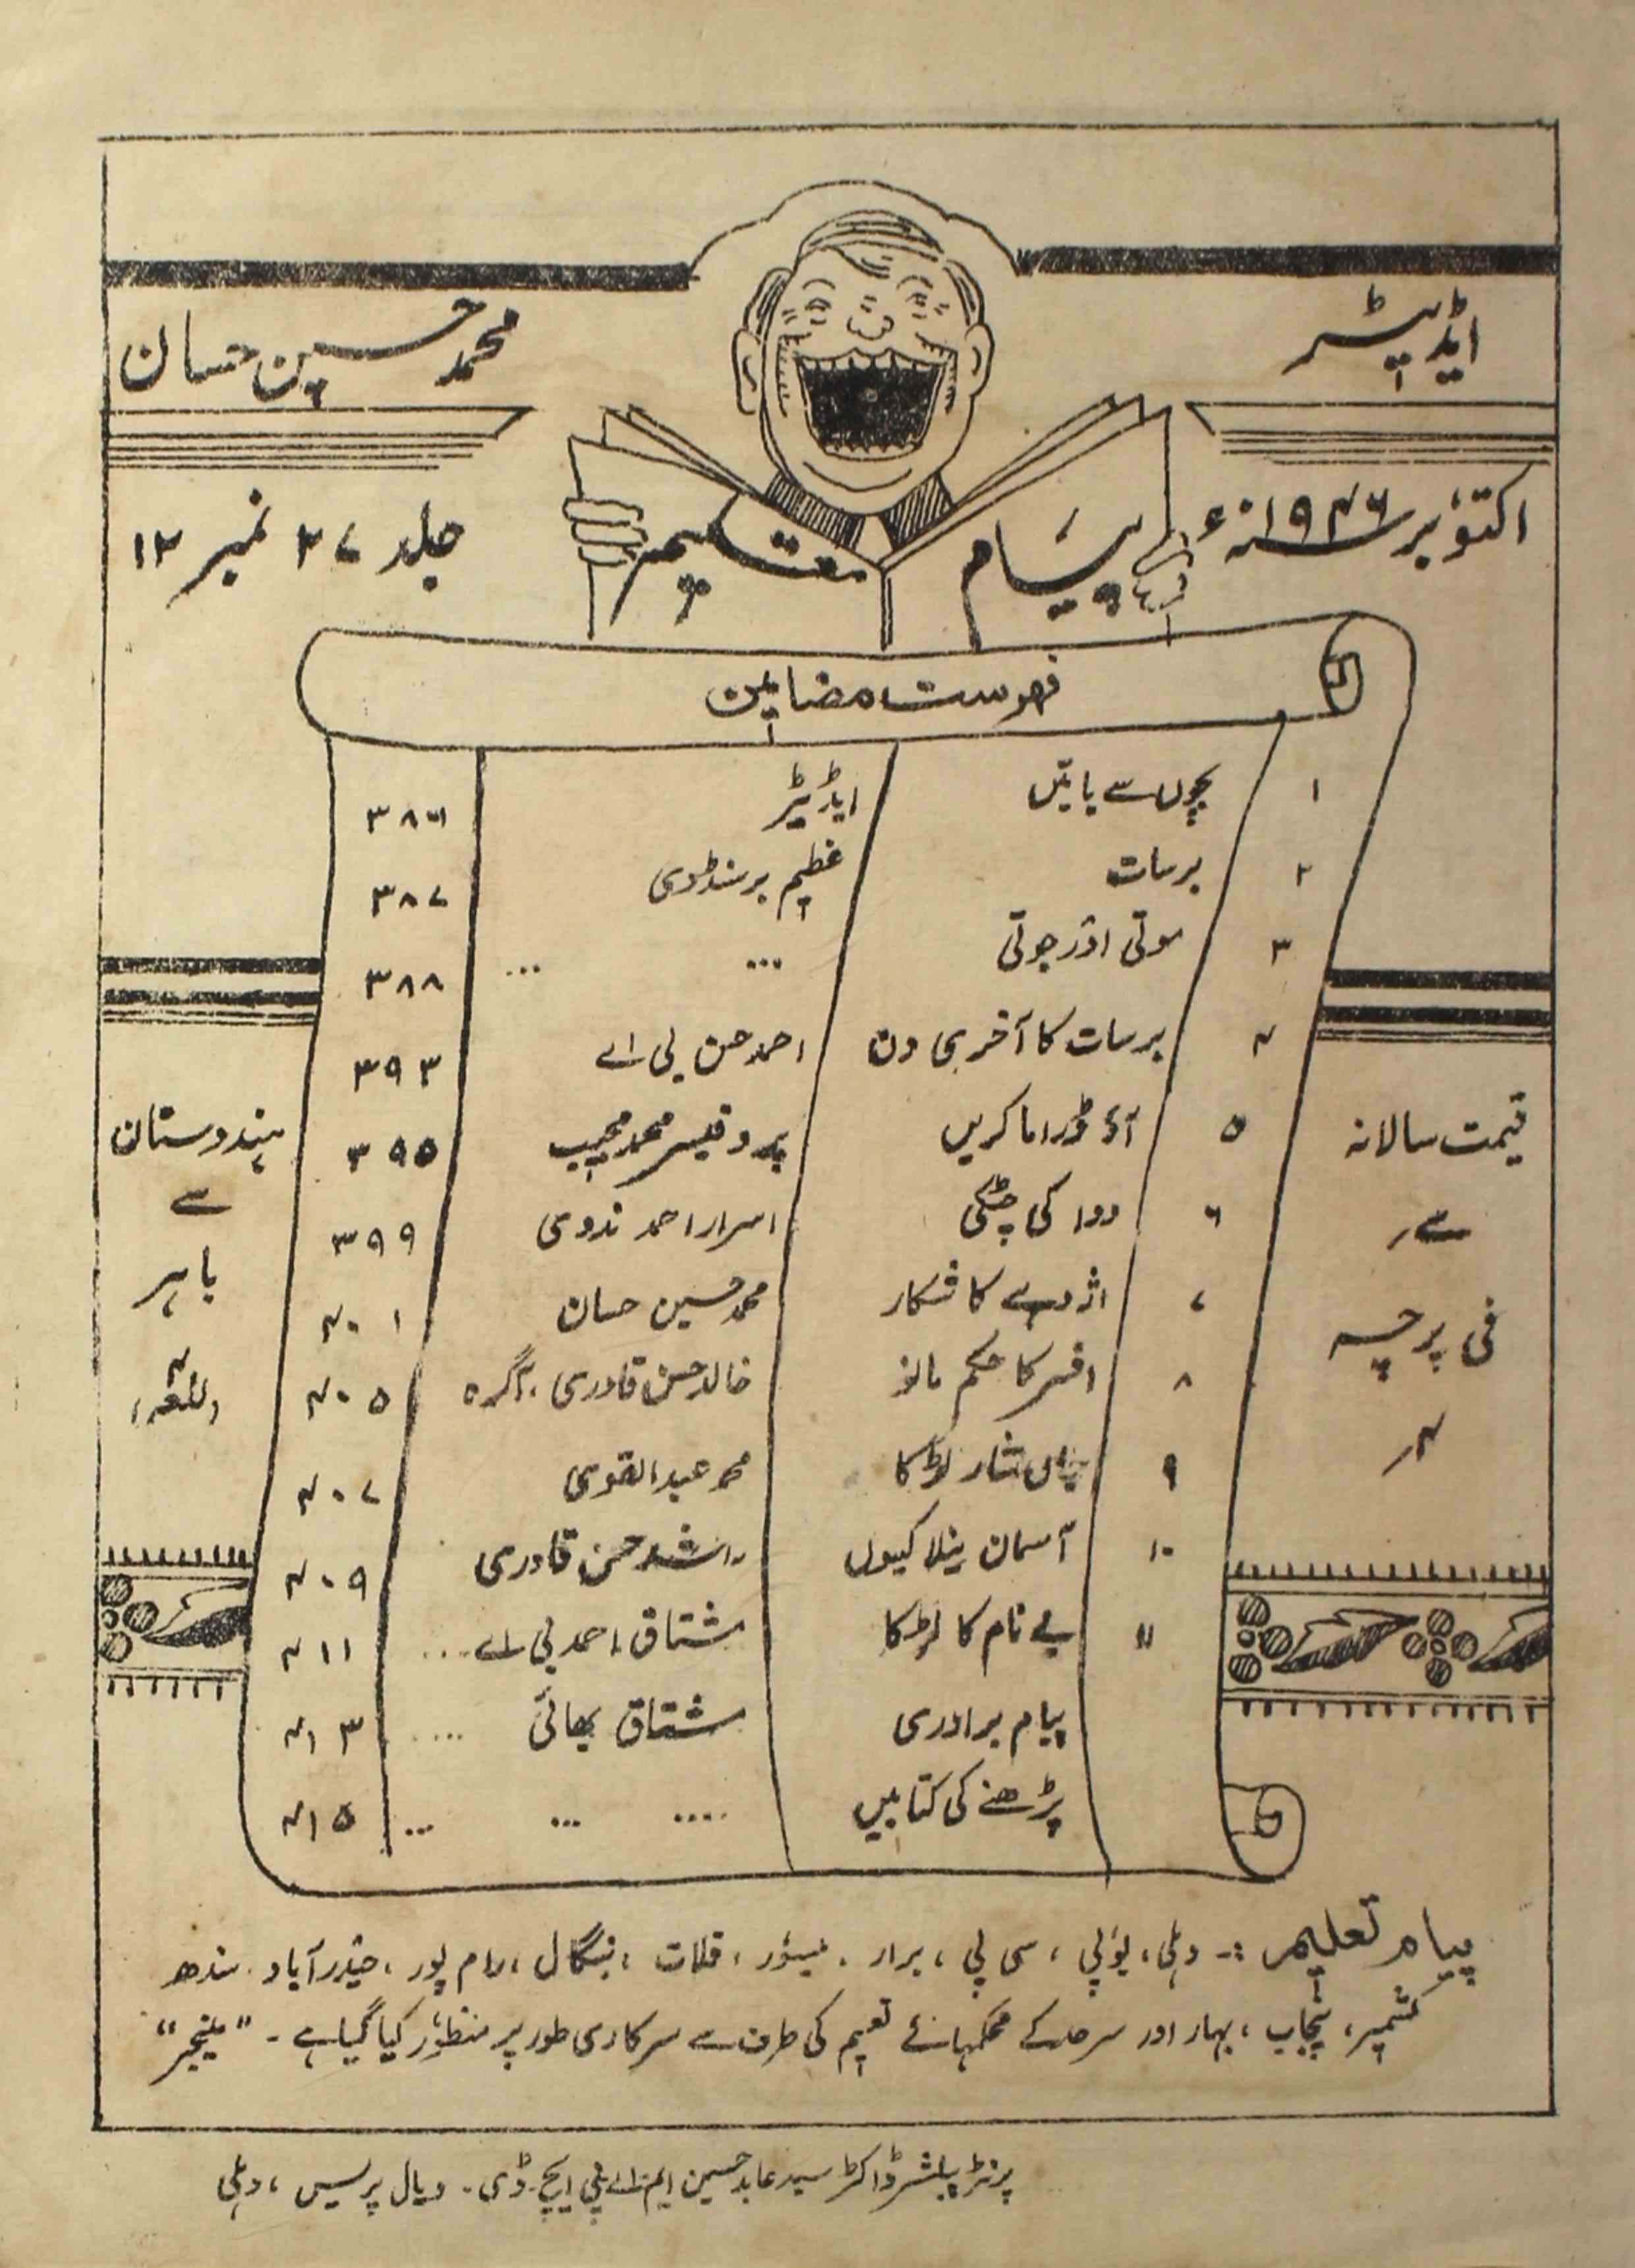 ایڈیٹر
محمد حسین حسان
اکتوبر ۱۹۴۶ء
پیام تعلیم
جلد ۲۷ نمبر ۱۲
فہرست مضامین
۱ بچوں سے باتیں ایڈیٹر ۳۸۶
۲ برسات عظیم برسنڈوی ۳۸۷
۳ موتی اور جوتی ... ... ۳۸۸
۴ برسات کا آخری دن احمد حسن بی اے ۳۹۳
۵ آؤ ڈراما کریں پروفیسر محمد مجیب ۳۹۵
۶ دوا کی چٹکی اسرار احمد ندوی ۳۹۹
۷ اژدہے کا شکار محمد حسین حسان ۴۰۱
۸ افسر کا حکم مانو خالد حسن قادری، آگرہ ۴۰۵
۹ جاں نثار لڑکا محمد عبدالقوی ۴۰۷
۱۰ آسمان نیلا کیوں راشد حسن قادری ۴۰۹
۱۱ بے نام کا لڑکا مشتاق احمد بی اے ... ۴۱۱
پیام برادری مشتاق بھائی .... ۴۱۳
پڑھنے کی کتابیں .... ... ... ۴۱۵
قیمت سالانہ
فی پرچہ
۴ر
ہندوستان
سے
باہر
پیام تعلیم :۔ دہلی، یوپی، سی پی، برار، میسور، قلات، بنگال، رام پور، حیدرآباد، سندھ
کشمیر، پنجاب، بہار اور سرحد کے محکمہائے تعلیم کی طرف سے سرکاری طور پر منظور کیا گیا ہے۔ "مینیجر"
پرنٹر پبلشر ڈاکٹر سید عابد حسین ایم۔اے پی ایچ۔ ڈی۔ دیال پریس، دہلی